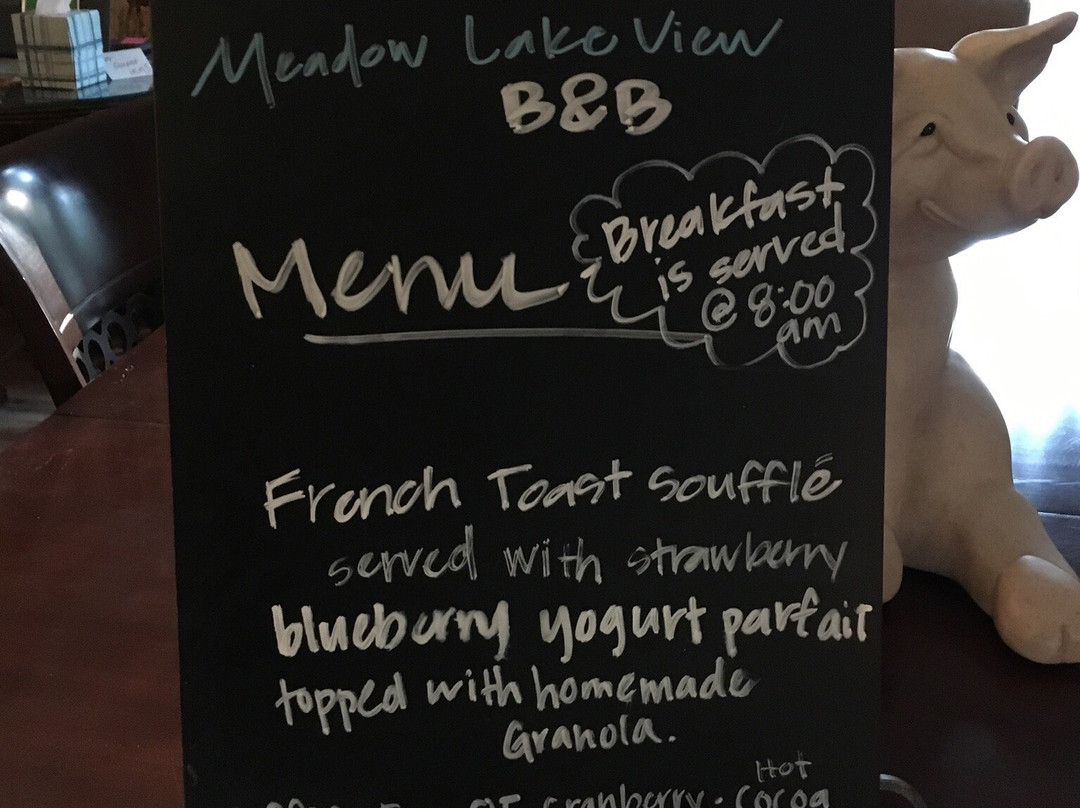 Meadow Lake View
B&B
Menu
Breakfast
is served
@ 8:00
am
French Toast Soufflé
served with strawberry
blueberry yogurt parfait
topped with homemade
Granola.
Hot
OJ cranberry. Cocoa